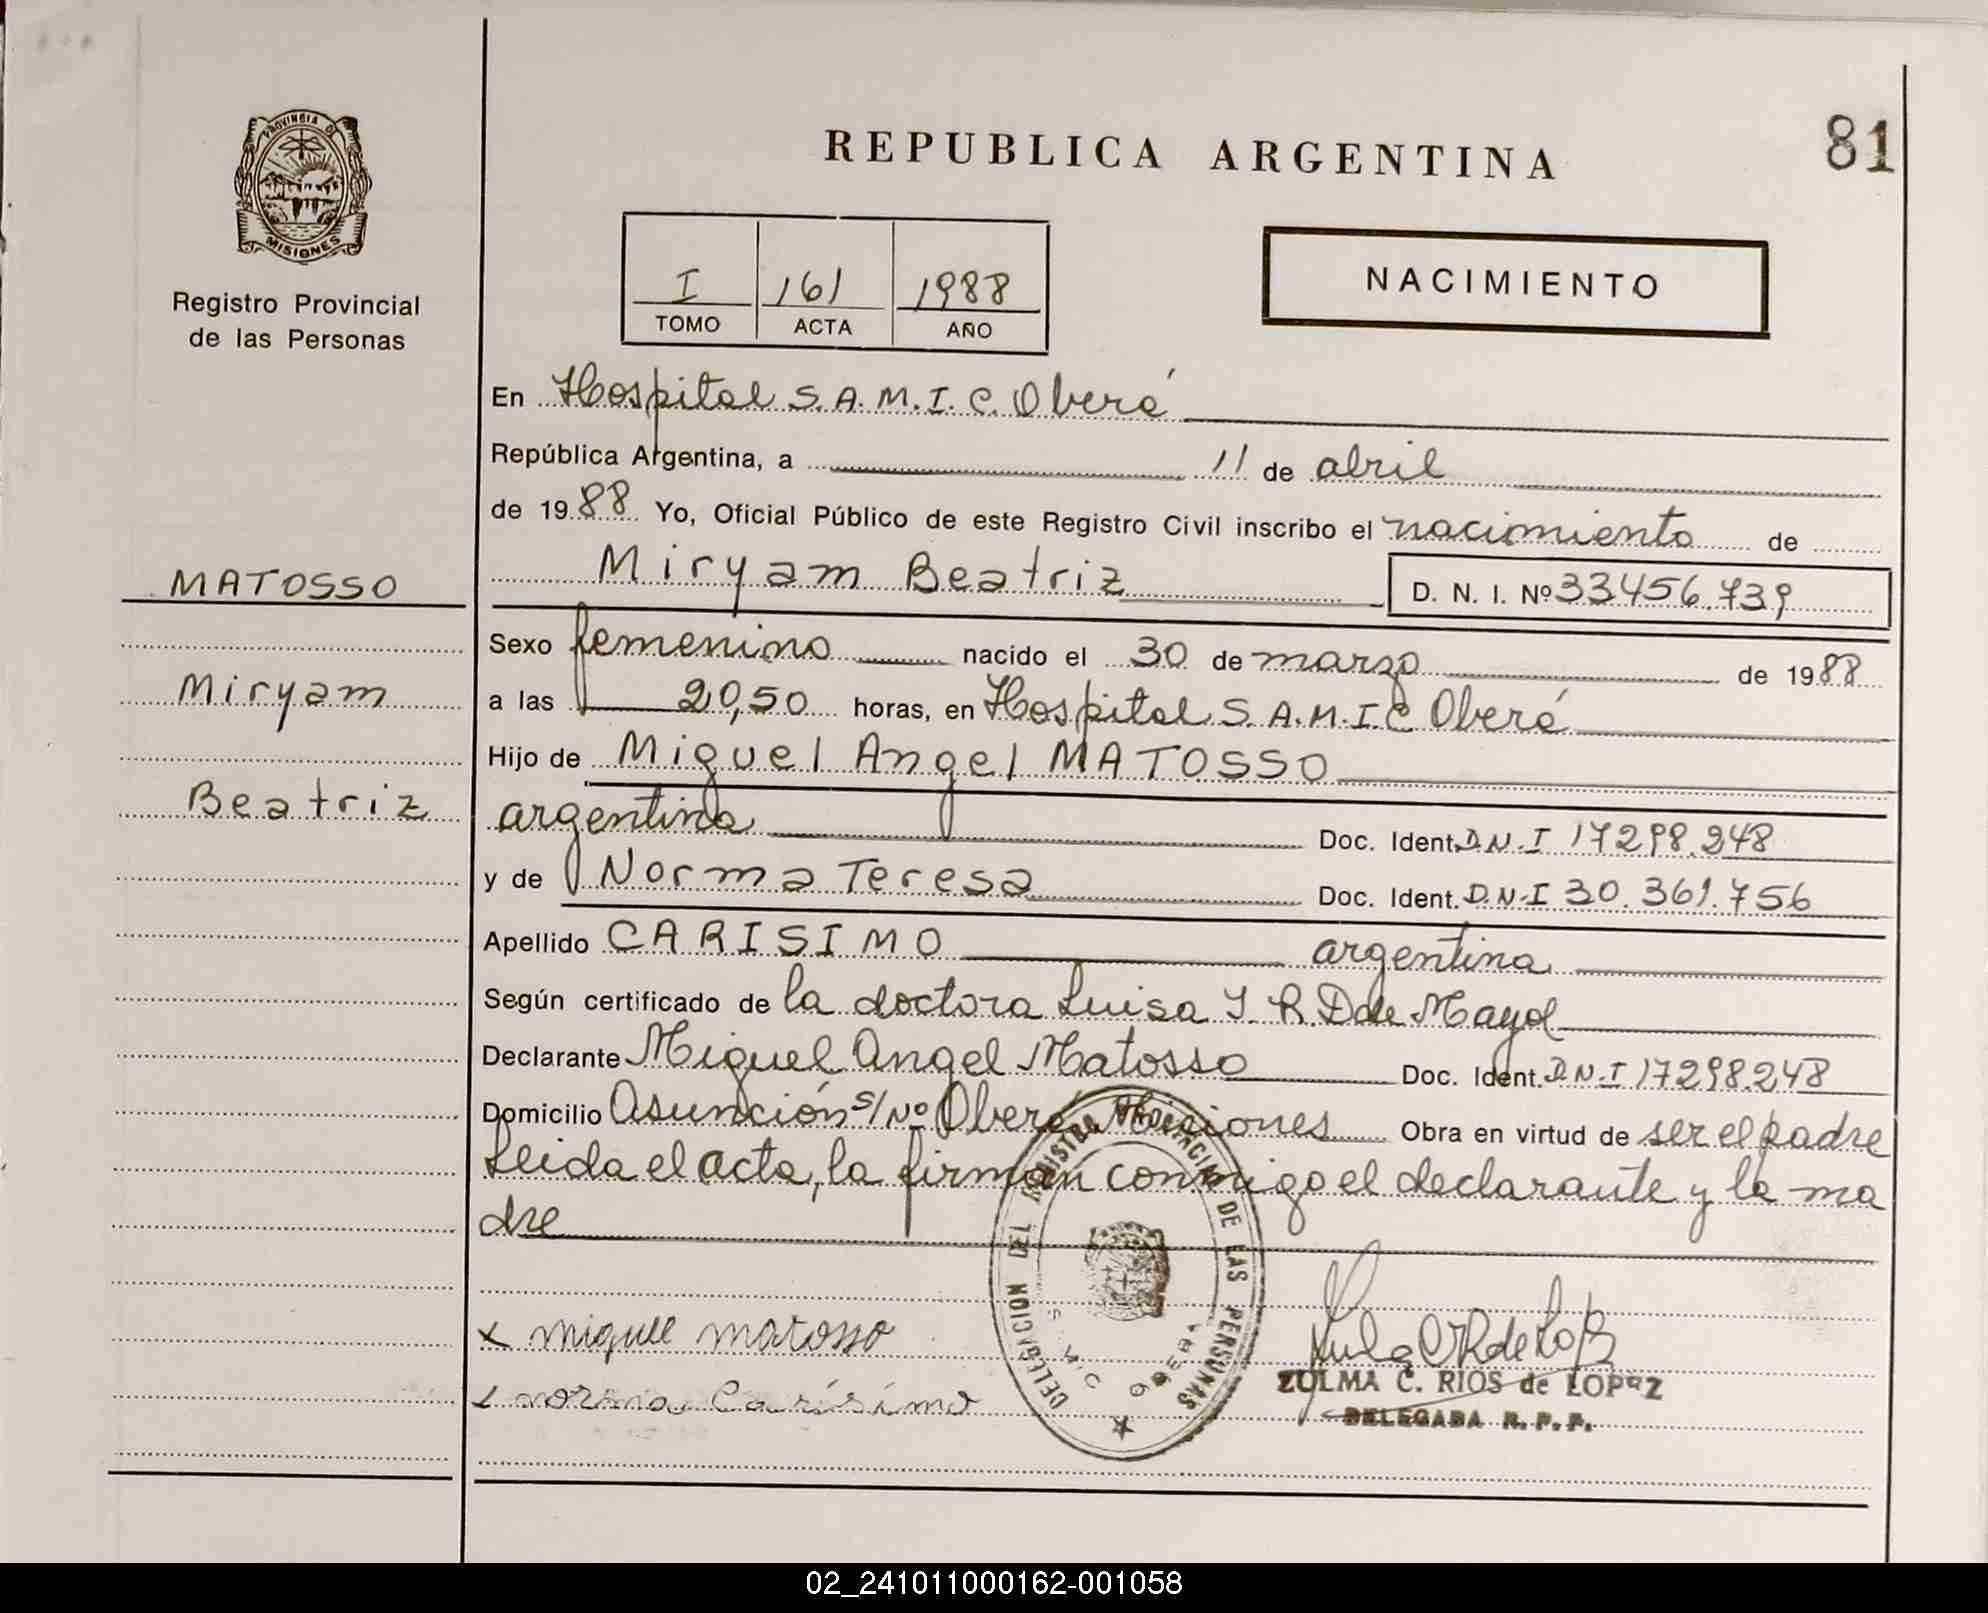 PROVINCIA DE
MISIONES
Registro Provincial
de las Personas
MATOSSO
Miryam
Beatriz
REPUBLICA ARGENTINA
81
I 161 1988
TOMO ACTA AÑO
NACIMIENTO
En Hospital S.A.M.I.C. Oberá
República Argentina, a 11 de abril
de 1988 Yo, Oficial Público de este Registro Civil inscribo el nacimiento de
Miryam Beatriz D. N. I. Nº 33456.739
Sexo femenino nacido el 30 de marzo de 1988
a las 20,50 horas, en Hospital S.A.M.I.C Oberá
Hijo de Miguel Angel MATOSSO
argentina Doc. Ident. D.N.I 17298.248
y de Norma Teresa Doc. Ident. D.N.I 30.361.756
Apellido CARISIMO argentina
Según certificado de la doctora Luisa I. R. D de Mayol
Declarante Miguel Angel Matosso Doc. Ident. D.N.I 17298.248
Domicilio Asunción s/Nº Oberá Misiones Obra en virtud de ser el padre
Leida el acta, la firman conmigo el declarante y la ma
dre
DELEGACION DEL REGISTRO PROVINCIAL DE LAS PERSONAS
OBERA
x miguel matosso
x norma Carísimo
ZULMA C. RIOS de LOPEZ
DELEGADA R. P. P.
02_241011000162-001058